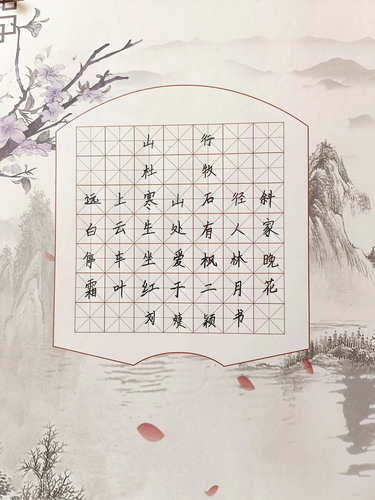 山行
杜牧
远上寒山石径斜
白云生处有人家
停车坐爱枫林晚
霜叶红于二月花
刘 颖书